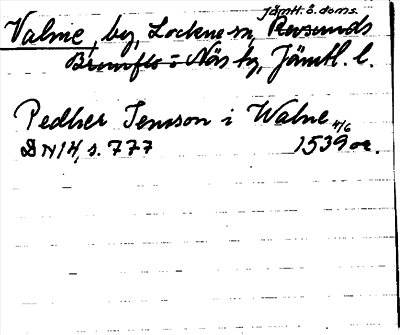 Jämtl. ö. doms.
Valne, by, Lockne sn, Revsunds
Brunflo o Näs tg, Jämtl. l.
Pedher Jemson i Walne 4/6
DN 14, s. 777 1539 or.